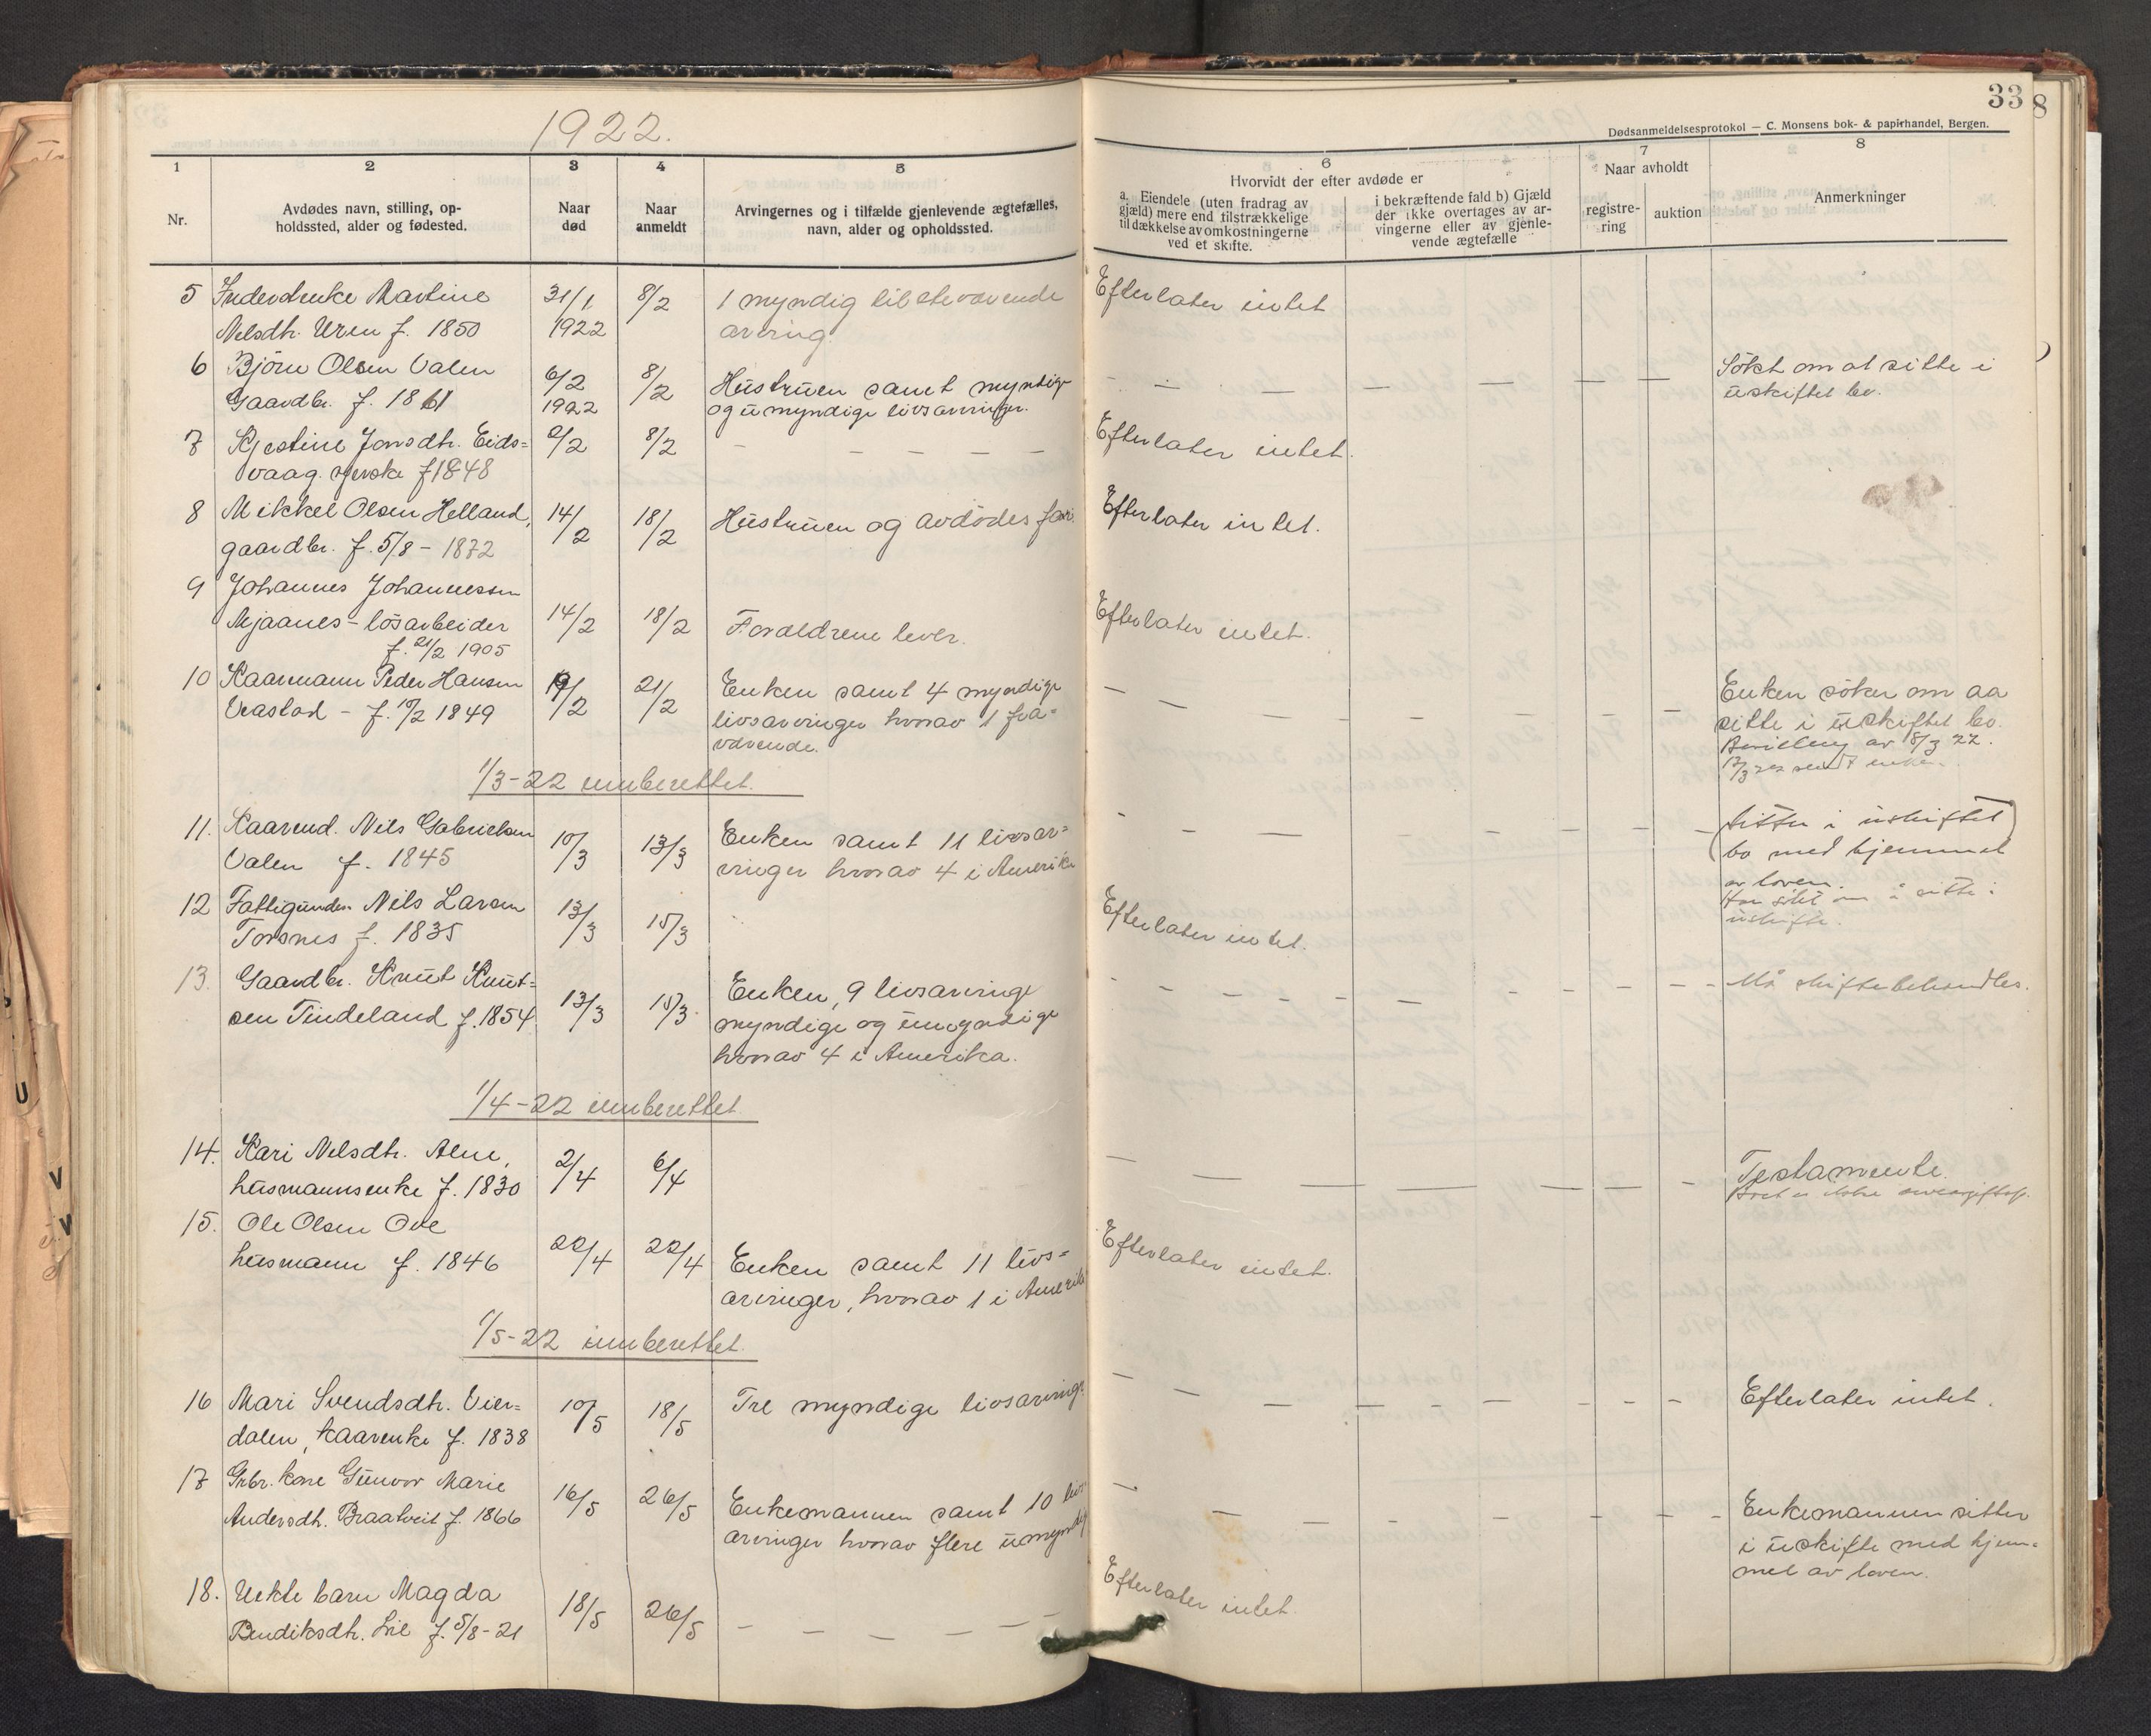 33
8
1922.
Dødsanmeldelsesprotokol — C. Monsens bok- & papirhandel, Bergen.
1
Nr.
2
Avdødes navn, stilling, op-
holdssted, alder og fødested.
3
Naar
død
4
Naar
anmeldt
5
Arvingernes og i tilfælde gjenlevende ægtefælles,
navn, alder og opholdssted.
6
Hvorvidt der efter avdøde er
a. Eiendele (uten fradrag av
gjæld) mere end tilstrækkelige
til dækkelse av omkostningerne
ved et skifte.
i bekræftende fald b) Gjæld
der ikke overtages av ar-
vingerne eller av gjenle-
vende ægtefælle
7
Naar avholdt
registre-
ring
auktion
8
Anmerkninger
5 Inderstenke Martine 31/1 8/2 1 myndig tilsteværende Efterlater intet
Nelsdtr. Uren f. 1850 1922 arving.
6 Björn Olsen Valen 6/2 8/2 Hustruen samt myndige — — — — — — Sökt om at sitte i
Gaardbr. f. 1861 1922 og umyndige livsarvinger. uskiftet bo.
7 Kjestine Jonsdtr. Eids= 2/2 8/2 — — — — Efterlater intet.
vaag. f 1848
8 Mikkel Olsen Helland, 14/2 18/2 Hustruen og avdödes Efterlater intet.
gaardbr. f. 5/8 - 1872
9 Johannes Johannessen
Mjaanes - lösarbeider 14/2 18/2 Forældrene lever. Efterlater intet.
f. 21/2 1905
10 Kaarmann Peder Hansen 19/2 21/2 Enken samt 4 myndige — — — — — — — Enken söker om aa
- f. 10/2 1849 livsarvinger hvorav 1 fra= sitte i uskiftet bo.
værende. Bevilling av 8/3 22.
1/3-22 innberettet.
11. Nils Gabrielsen 10/3 13/3 Enken samt 11 livsar= - - — — — — — Sitter i uskiftet
Valen f. 1845 vinger hvorav 4 i Amerika bo med hjemmel
av loven.
12 Nils Larsen 13/3 15/3 Efterlater intet. Har sökt om å sitte i
Torsnes f. 1835 uskifte.
13. Gaardbr. Knut Knut= 13/3 15/3 Enken, 9 livsarvinge - - - - - - - - Må skiftebehandles.
sen Tindeland f. 1854 myndige og umyndige
hvorav 4 i Amerika.
1/4-22 innberettet
14. Kari Nelsdtr. Alne, 2/4 6/4 — — — — — — Testamente.
husmannsenke f. 1830
15. Ole Olsen Ove 22/4 22/4 Enken samt 11 livs= Efterlater intet.
husmann f. 1846 arvinger, hvorav 1 i Amerika
1/5-22 innberettet.
16 Mari Svendsdtr. Vier= 10/5 18/5 Tre myndige livsarvinge — — — — — — - - Efterlater intet.
dalen, kaarenke f. 1838
17 Grbr. kone Gunvor Marie 16/5 26/5 Enkemannen samt 10 livs — — — — - - - Enkemannen sitter
Andersdtr. Braatveit f. 1866 arvinger hvorav flere umyndig i uskifte med hjem=
mel av loven.
18. Uekte barn Magda 18/5 26/5 — — — — — Efterlater intet.
Bendiksdtr. Lie f. 5/8-21